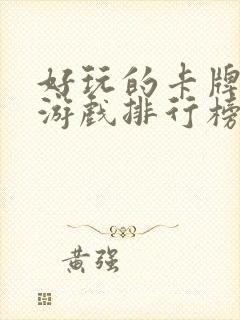 好玩的卡牌
游戏排行榜
黄强